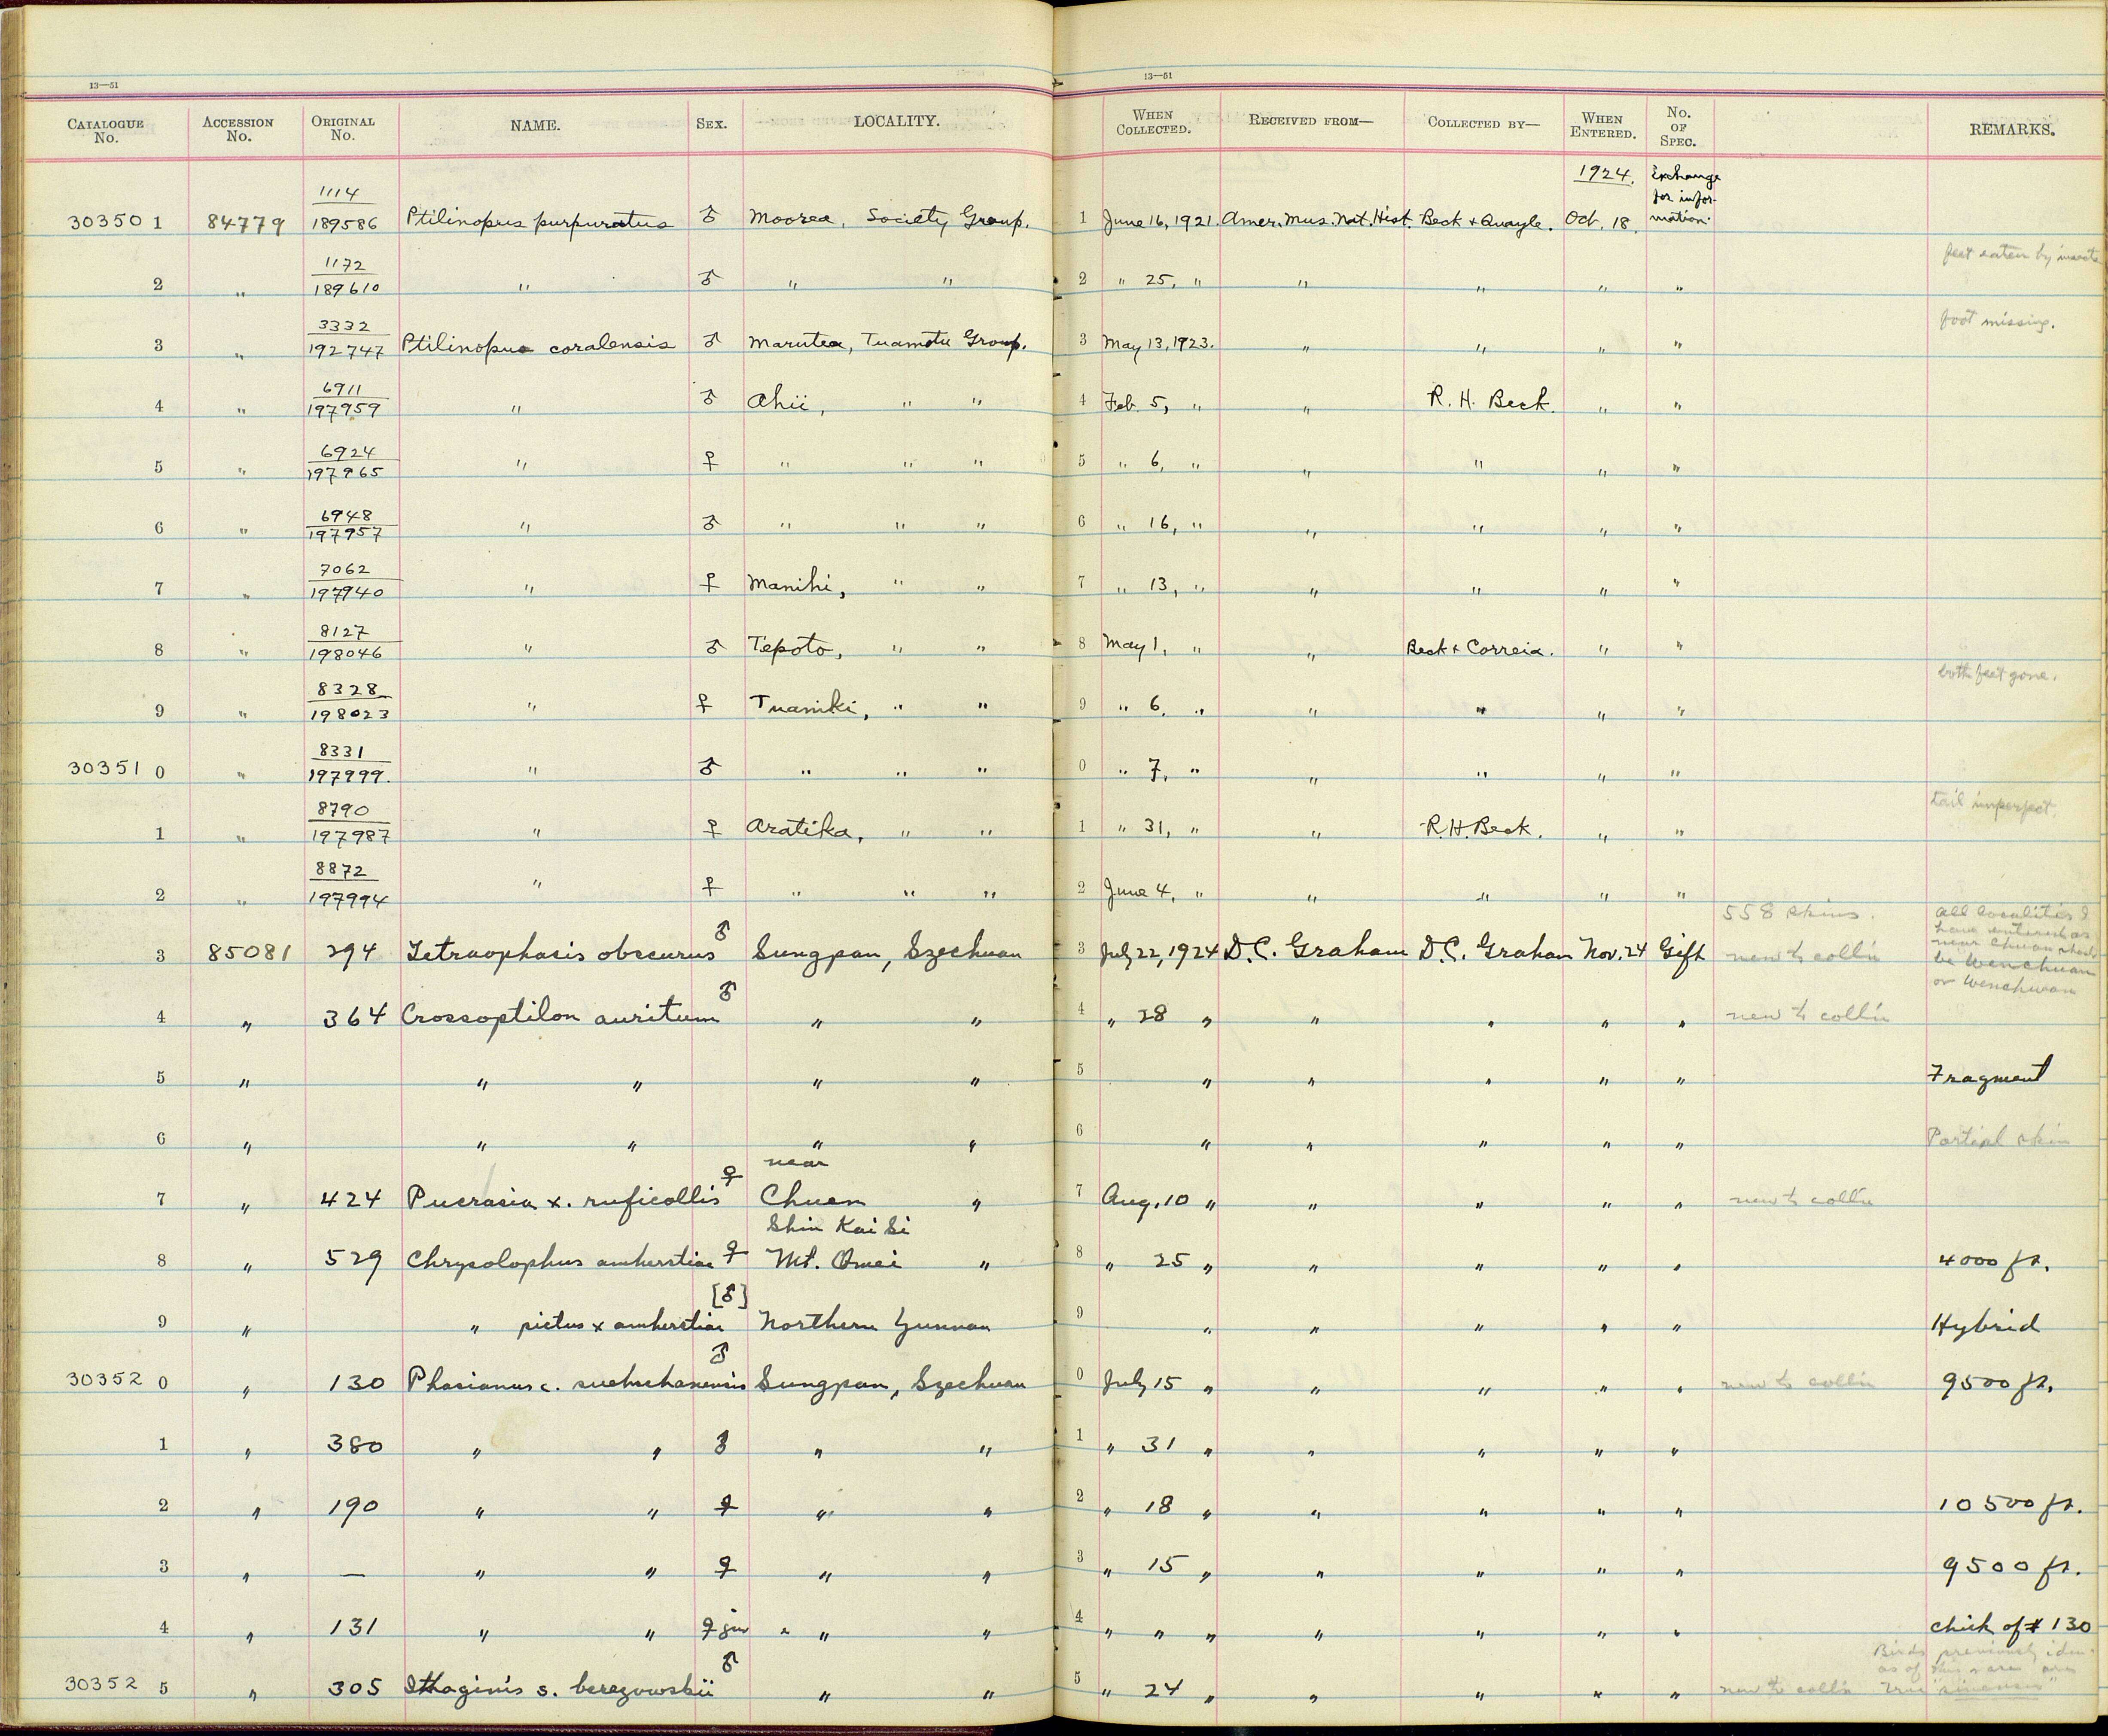 13—51 13—51
CATALOGUE No. ACCESSION No. ORIGINAL No. NAME. SEX. LOCALITY. WHEN COLLECTED. RECEIVED FROM— COLLECTED BY— WHEN ENTERED. No. OF SPEC. REMARKS.
1114 1924. Exchange for infor-
303501 84779 189586 Ptilinopus purpuratus ♂ Moorea, Society Group. 1 June 16, 1921. Amer. Mus. Nat. Hist. Beck + Quayle. Oct. 18. mation.
1172 feet eaten by insects
2 " 189610 " ♂ " " 2 " 25, " " " " "
3332 foot missing.
3 " 192747 Ptilinopus coralensis ♂ Marutea, Tuamotu Group. 3 May 13, 1923. " " " "
6911
4 " 197959 " ♂ Ahii, " " 4 Feb. 5, " " R. H. Beck. " "
6924
5 " 197965 " ♀ " " " 5 " 6, " " " " "
6948
6 " 197957 " ♂ " " " 6 " 16, " " " " "
7062
7 " 197940 " ♀ Manihi, " " 7 " 13, " " " " "
8127
8 " 198046 " ♂ Tepoto, " " 8 May 1, " " Beck + Correia. " "
8328 both feet gone.
9 " 198023 " ♀ Tuaniki, " " 9 " 6, " " " " "
8331
303510 " 197999. " ♂ " " " 0 " 7, " " " " "
8790 tail imperfect.
1 " 197987 " ♀ Aratika, " " 1 " 31, " " R.H. Beck. " "
8872
2 " 197994 " ♀ " " " 2 June 4, " " " " "
558 skins. all localities I
have entered as
3 85081 294 Tetraophasis obscurus ♂ Sungpan, Szechuan 3 July 22, 1924 D.C. Graham D.C. Graham Nov. 24 Gift new to coll'n near Chuan should
be Wenchuan
or Wenchwan
4 " 364 Crossoptilon auritum ♂ " " 4 " 28 " " " " " new to coll'n
5 " " " " " 5 " " " " " Fragment
6 " " " " " 6 " " " " " Partial skin
near
7 " 424 Pucrasia x. ruficollis ♀ Chuan " 7 Aug. 10 " " " " " new to coll'n
Shin Kai Si
8 " 529 Chrysolophus amherstiae ♀ Mt. Omei " 8 " 25 " " " " " 4000 ft.
9 " " pictus x amherstiae [♂] Northern Yunnan 9 " " " " " Hybrid
303520 " 130 Phasianus c. suehschanensis ♂ Sungpan, Szechuan 0 July 15 " " " " " new to coll'n 9500 ft.
1 " 380 " " ♂ " " 1 " 31 " " " " "
2 " 190 " " ♀ " " 2 " 18 " " " " " 10500 ft.
3 " — " " ♀ " " 3 " 15 " " " " " 9500 ft.
4 " 131 " " ♀ juv " " " 4 " " " " " " " chick of # 130
Birds previously iden.
as of this race are
303525 " 305 Ithaginis s. berezowskii ♂ " " 5 " 24 " " " " " new to coll'n true "sinensis"